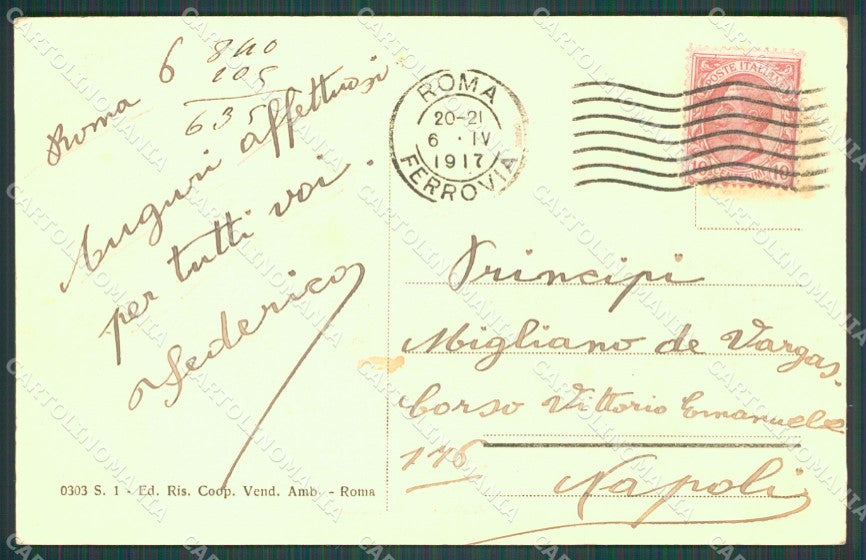 Roma 6
840
105
635
Auguri affettuosi
per tutti voi.
Federico
0303 S. 1 - Ed. Ris. Coop. Vend. Amb. - Roma
ROMA
20-21
6 · IV
1917
FERROVIA
POSTE ITALIANE
10 10
Principi
Migliano de Vargas.
Corso Vittorio Emanuele
176
Napoli
CARTOLINOMANIA